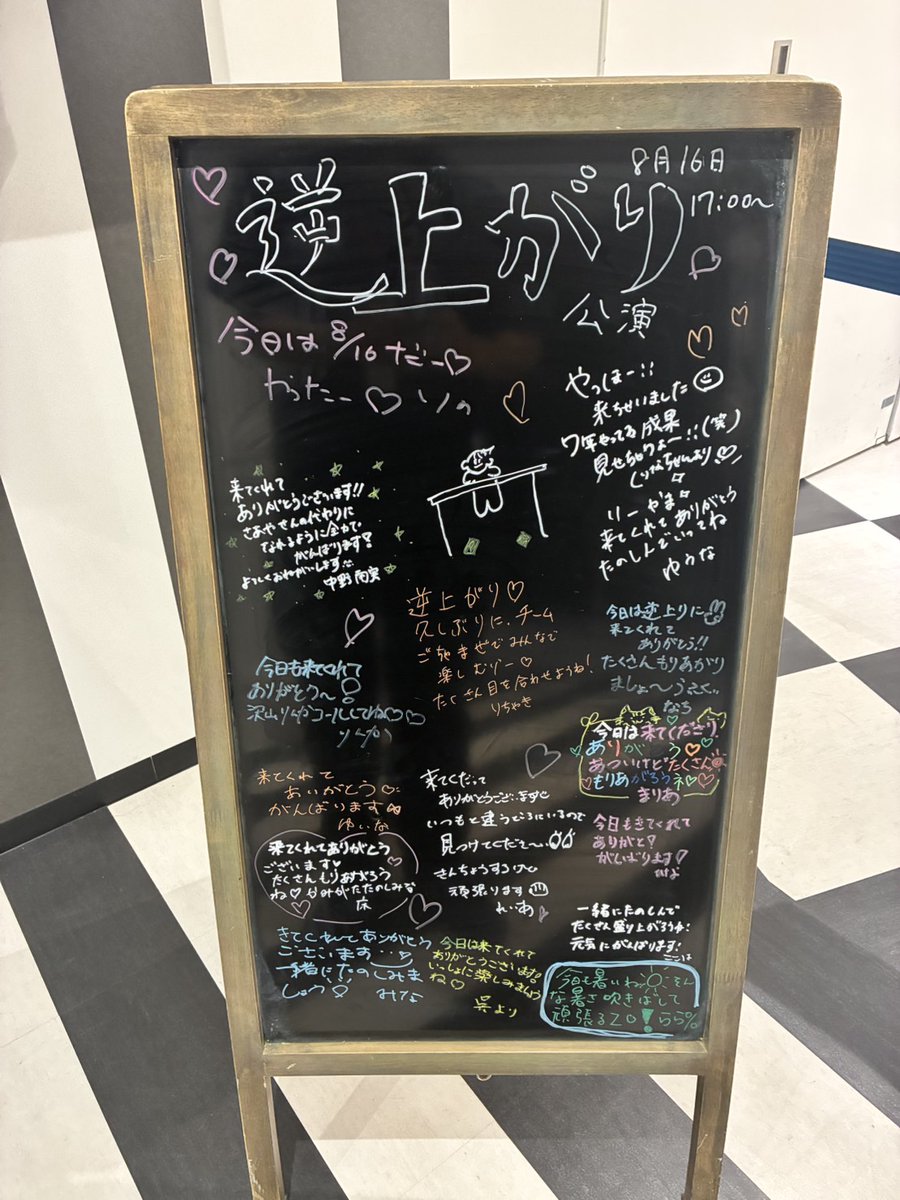 逆上がり
8月16日
17:00~
公演
今日は8/16だー♡
やったー♡ りの
やっほー!!
来ちゃいました
7年やってる成果
見せちゃうよー!!(笑)
りーやま
来てくれてありがとう
たのしんでいってね
ゆうな
来てくれて
ありがとうございます!!
さあやさんの代わりに
なれるように全力で
がんばります!
よろしくおねがいします
中野
逆上がり♡
久しぶりに、チーム
ごちゃまぜでみんなで
楽しむゾー♡
たくさん目を合わせようね!
りちゃき
今日は逆上りに
来てくれて
ありがとう!!
たくさんもりあがり
ましょ〜
なち
今日も来てくれて
ありがとう〜!
沢山りんかコールしてね♡♡
りんか
今日は来てくださり
ありがとう♡
あついけどたくさん
♡もりあがろうネ♡♡
まりあ
来てくれて
ありがとう
がんばります
ゆいな
来てくだって
ありがとうございます
いつもと違うところにいるので
見つけてくだて〜
きんちょうするけど
頑張ります
れいあ
今日もきてくれて
ありがと?
がんばります♡
来てくれてありがとう
ございます♥
たくさんもりあがろう
ね♡
一緒にたのしんで
たくさん盛り上がろうか!
元気にがんばります!
ここは
きてくれてありがとう
ございます
一緒にたのしみま
しょう
みな
今日は来てくれて
ありがとうございます!
いっしょに楽しみましょう
ね♡
呉より
今日も暑いねっ そん
な暑さ吹きばして
頑張るZO! らら%